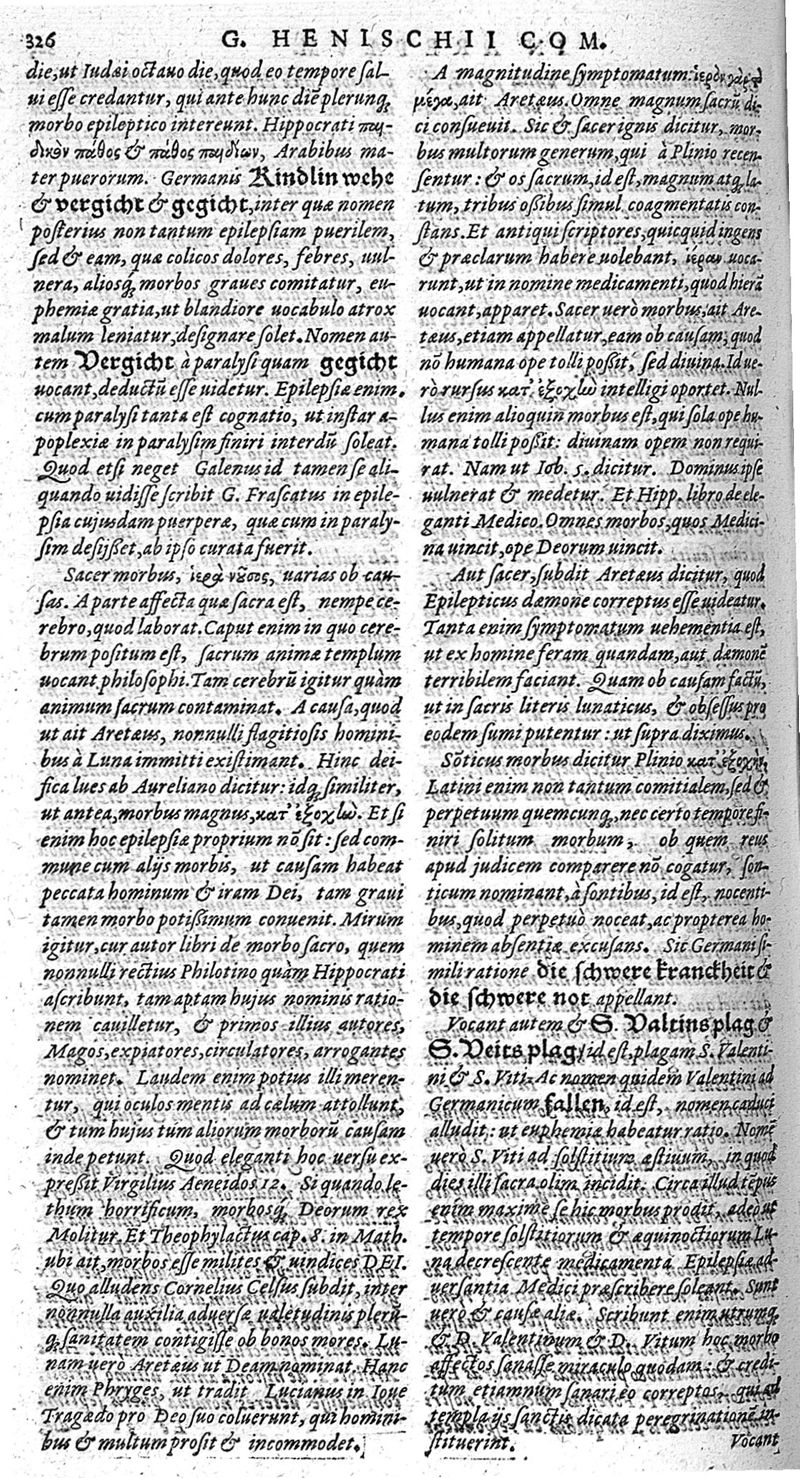 326 G. HENISCHII COM.
die, ut Iudæi octauo die, quod eo tempore sal-
ui esse credantur, qui ante hunc diē plerunq;
morbo epileptico intereunt. Hippocrati παι-
δικὸν πάθος & πάθος παιδίων, Arabibus ma-
ter puerorum. Germanis Kindlin wehe
& vergicht & gegicht, inter quæ nomen
posterius non tantum epilepsiam puerilem,
sed & eam, quæ colicos dolores, febres, uul-
nera, aliosq; morbos graues comitatur, eu-
phemiæ gratia, ut blandiore uocabulo atrox
malum leniatur, designare solet. Nomen au-
tem Vergicht à paralysi quam gegicht
uocant, deductū esse uidetur. Epilepsiæ enim
cum paralysi tanta est cognatio, ut instar a-
poplexiæ in paralysim finiri interdū soleat.
Quod etsi neget Galenus id tamen se ali-
quando uidisse scribit G. Frascatus in epile-
psia cujusdam puerperæ, quæ cum in paraly-
sim desijsset, ab ipso curata fuerit.
Sacer morbus, ἱερὰ νῶσος, uarias ob cau-
sas. A parte affecta quæ sacra est, nempe ce-
rebro, quod laborat. Caput enim in quo cere-
brum positum est, sacrum animæ templum
uocant philosophi. Tam cerebrū igitur quàm
animum sacrum contaminat. A causa, quod
ut ait Aretæus, nonnulli flagitiosis homini-
bus à Luna immitti existimant. Hinc dei-
fica lues ab Aureliano dicitur: idq; similiter,
ut antea, morbus magnus, κατ' ἐξοχὼ. Et si
enim hoc epilepsiæ proprium nō sit: sed com-
mune cum alijs morbis, ut causam habeat
peccata hominum & iram Dei, tam graui
tamen morbo potissimum conuenit. Mirum
igitur, cur autor libri de morbo sacro, quem
nonnulli rectius Philotino quàm Hippocrati
ascribunt, tam aptam hujus nominis ratio-
nem cauilletur, & primos illius autores,
Magos, expiatores, circulatores, arrogantes
nominet. Laudem enim potius illi meren-
tur, qui oculos mentis ad cælum attollunt,
& tum hujus tum aliorum morborū causam
inde petunt. Quod eleganti hoc uersu ex-
pressit Virgilius Aeneidos 12. Si quando le-
thum horrificum, morbosq; Deorum rex
Molitur. Et Theophylactus cap. 8. in Math.
ubi ait, morbos esse milites & uindices DEI.
Quo alludens Cornelius Celsus subdit, inter
nonnulla auxilia aduersæ ualetudinis plerū-
q; sanitatem contigisse ob bonos mores. Lu-
nam uerò Aretæus ut Deam nominat. Hanc
enim Phryges, ut tradit Lucianus in Ioue
Tragædo pro Deo suo coluerunt, qui homini-
bus & multum prosit & incommodet.
A magnitudine symptomatum: ἱερὸν γὰρ τὸ
μέγα, ait Aretæus. Omne magnum sacrū di-
ci consueuit. Sic & sacer ignis dicitur, mor-
bus multorum generum, qui à Plinio recen-
sentur: & os sacrum, id est, magnum atq; la-
tum, tribus ossibus simul coagmentatis con-
stans. Et antiqui scriptores, quicquid ingens
& præclarum habere uolebant, ἱερὰν uoca-
runt, ut in nomine medicamenti, quod hierā
uocant, apparet. Sacer uerò morbus, ait Are-
tæus, etiam appellatur, eam ob causam, quod
nō humana ope tolli possit, sed diuina. Id ue-
rò rursus κατ' ἐξοχὼ intelligi oportet. Nul-
lus enim alioquin morbus est, qui sola ope hu-
mana tolli possit: diuinam opem non requi-
rat. Nam ut Iob. 5. dicitur. Dominus ipse
uulnerat & medetur. Et Hipp. libro de ele-
ganti Medico. Omnes morbos, quos Medici-
na uincit, ope Deorum uincit.
Aut sacer, subdit Aretæus dicitur, quod
Epilepticus dæmone correptus esse uideatur.
Tanta enim symptomatum uehementia est,
ut ex homine feram quandam, aut dæmonē
terribilem faciant. Quam ob causam factū,
ut in sacris literis lunaticus, & obsessus pro
eodem sumi putentur: ut supra diximus.
Sōticus morbus dicitur Plinio κατ' ἐξοχὴν,
Latini enim non tantum comitialem, sed &
perpetuum quemcunq; nec certo tempore fi-
niri solitum morbum, ob quem reus
apud judicem comparere nō cogatur, son-
ticum nominant, à sontibus, id est, nocenti-
bus, quod perpetuò noceat, ac propterea ho-
minem absentiæ excusans. Sic Germani si-
mili ratione die schwere kranckheit &
die schwere not appellant.
Vocant autem & S. Valtins plag &
S. Veits plag / id est, plagam S. Valenti-
ni & S. Viti. Ac nomen quidem Valentini ad
Germanicum fallen, id est, nomen caduci
alludit: ut euphemiæ habeatur ratio. Nomē
uerò S. Viti ad solstitium æstiuum, in quod
dies illi sacra olim incidit. Circa illud tēpus
enim maxime se hic morbus prodit, adeo ut
tempore solstitiorum & æquinoctiorum Lu-
na decrescente medicamenta Epilepsiæ ad-
uersantia Medici præscribere soleant. Sunt
uerò & causæ aliæ. Scribunt enim utrumq;
& D. Valentinum & D. Vitum hoc morbo
affectos sanasse miraculo quodam: & credi-
tum etiamnum sanari eo correptos, qui ad
templa ijs sanctis dicata peregrinationē in-
stituerint.
Vocant